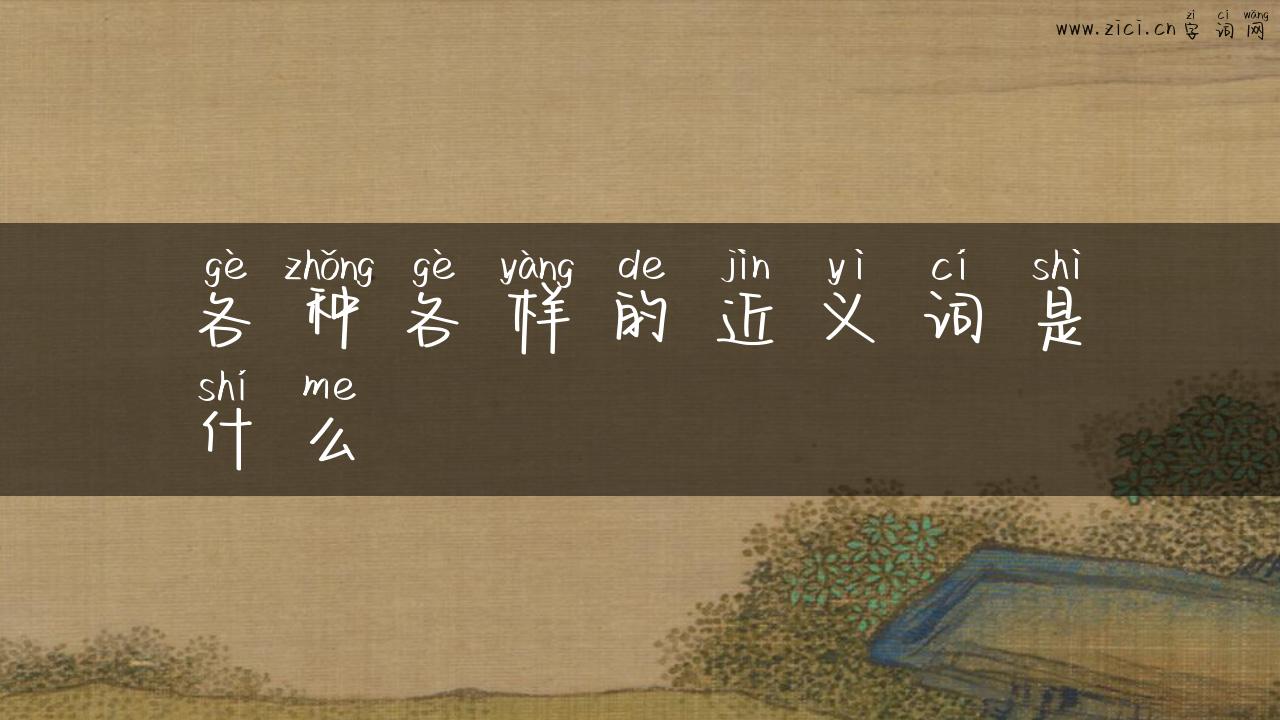 zì cí wǎng
www.zici.cn 字词网
gè zhǒng gè yàng de jìn yì cí shì
各种各样的近义词是
shí me
什么